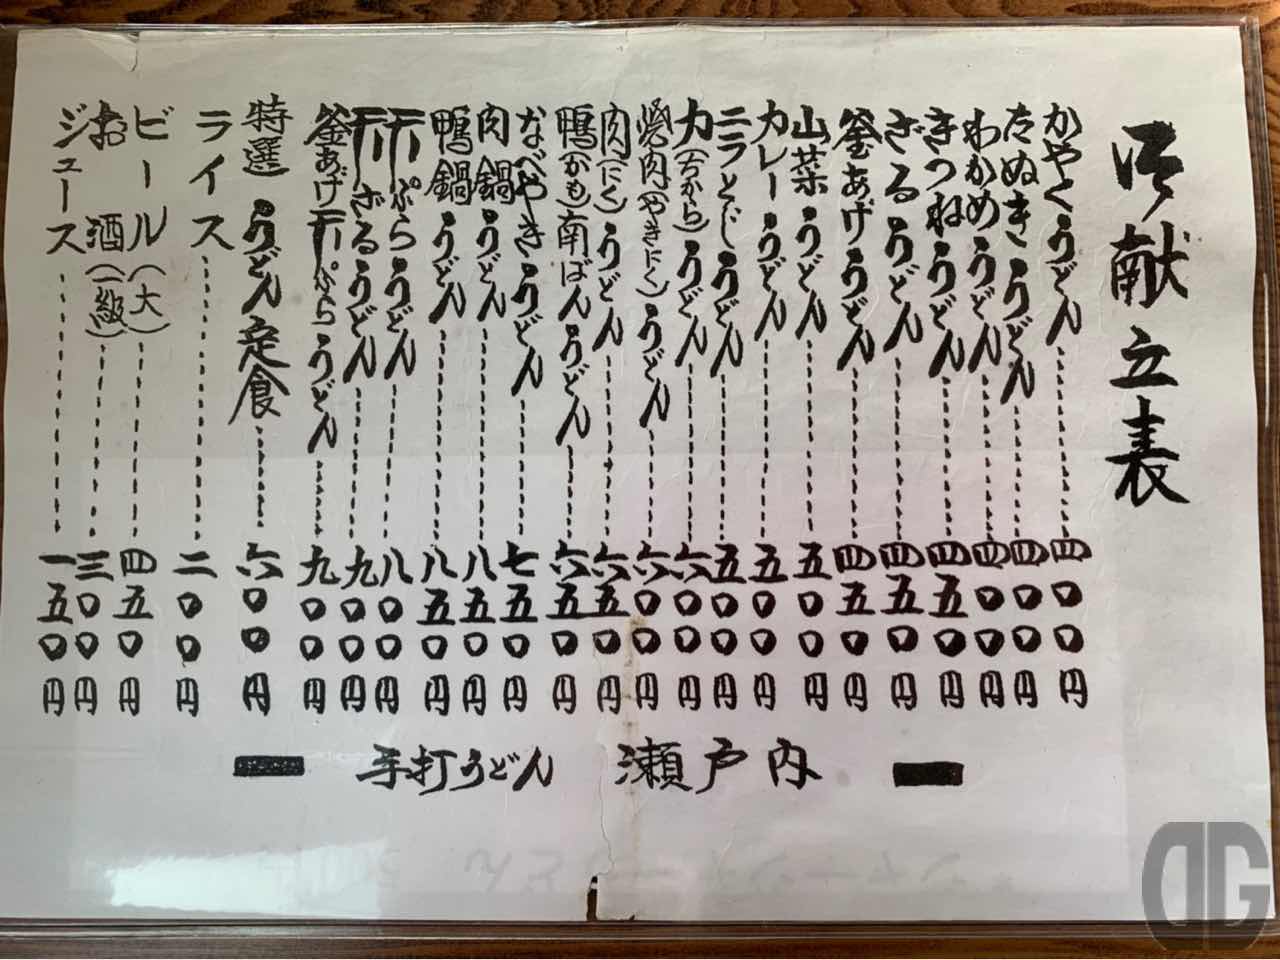 御献立表
かやくうどん 四〇〇円
たぬきうどん 四〇〇円
わかめうどん 四〇〇円
きつねうどん 四五〇円
ざるうどん 四五〇円
釜あげうどん 四五〇円
山菜うどん 五〇〇円
カレーうどん 五〇〇円
ニラとじうどん 五〇〇円
力(ちから)うどん 六〇〇円
焼肉(やきにく)うどん 六〇〇円
肉(にく)うどん 六五〇円
鴨(かも)南ばんうどん 六五〇円
なべやきうどん 七五〇円
肉鍋うどん 八五〇円
鴨鍋うどん 八五〇円
天ぷらうどん 八〇〇円
天ざるうどん 九〇〇円
釜あげ天ぷらうどん 九〇〇円
特選うどん定食 六〇〇円
ライス 二〇〇円
ビール(大) 四五〇円
お酒(一級) 三〇〇円
ジュース 一五〇円
手打うどん 瀬戸内
DG